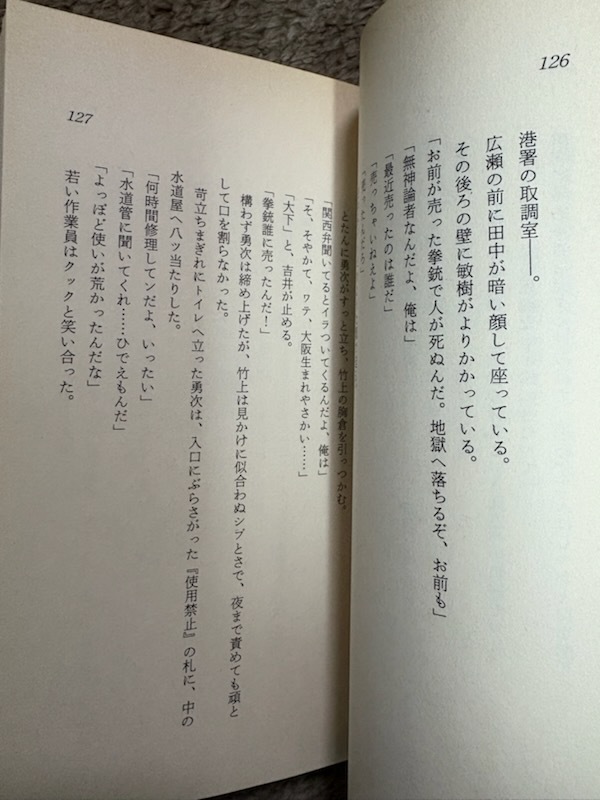 126
港署の取調室――。
広瀬の前に田中が暗い顔して座っている。
その後ろの壁に敏樹がよりかかっている。
「お前が売った拳銃で人が死ぬんだ。地獄へ落ちるぞ、お前も」
「無神論者なんだよ、俺は」
「最近売ったのは誰だ」
「売っちゃいねえよ」
127
とたんに勇次がすっと立ち。竹上の胸倉を引っつかむ。
「関西弁聞いてるとイラついてくるんだよ、俺は」
「そ、そやかて、ワテ、大阪生まれやさかい……」
「大下」と、吉井が止める。
「拳銃誰に売ったんだ！」
構わず勇次は締め上げたが、竹上は見かけに似合わぬシブとさで、夜まで責めても頑と
して口を割らなかった。
苛立ちまぎれにトイレへ立った勇次は、入口にぶらさがった『使用禁止』の札に、中の
水道屋へ八ッ当たりした。
「何時間修理してンだよ、いったい」
「水道管に聞いてくれ……ひでえもんだ」
「よっぽど使いが荒かったんだな」
若い作業員はクックと笑い合った。